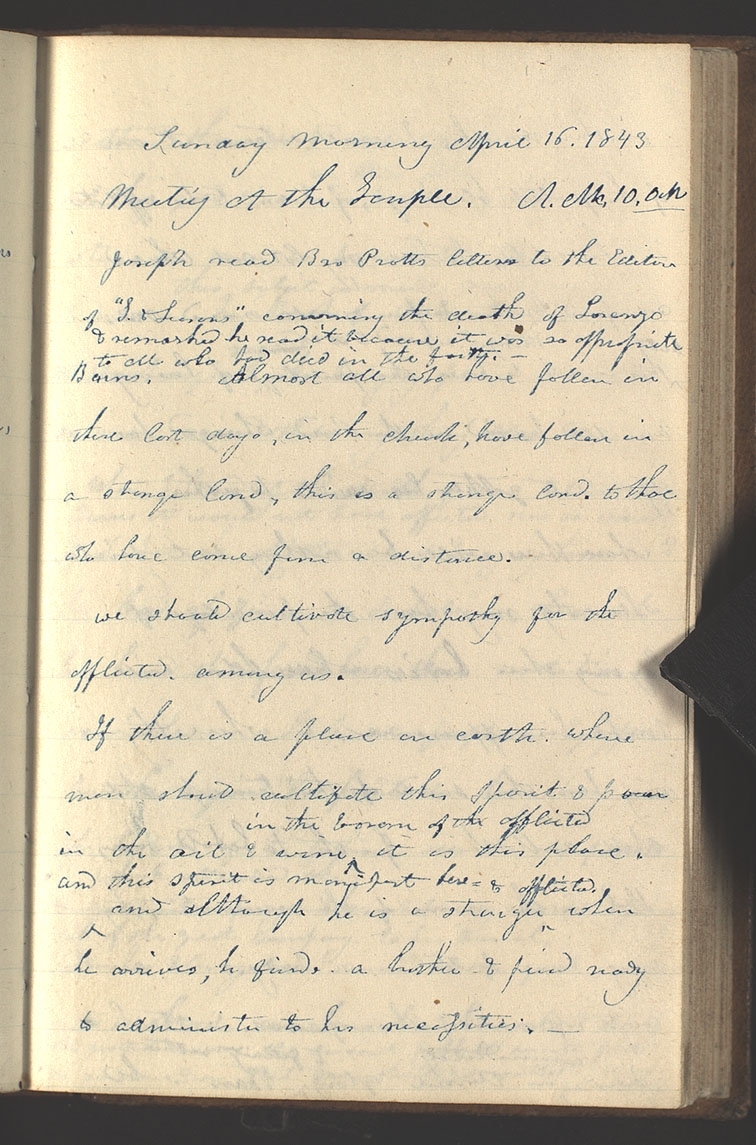 Sunday Morning April 16. 1843
Meeting at the Temple. A.M. 10. och
Joseph read Bro Pratts letters to the Editor
of "T. & Seasons" concerning the death of Lorenzo
& remarked he read it because it was so appropriate
to all who had died in the faith. —
Barns. Almost all who have fallen in
these last days, in the church, have fallen in
a strange land, this is a strange land. to those
who have come from a distance.
we should cultivate sympathy for the
afflicted. among us.
If there is a place on earth. where
men should cultivate this spirit & pour
in the bosom of the afflicted
in the oil & wine ^ it is this place.
and this spirit is manifest here = to afflicted.
and although he is a stranger when
^
he arrives, he finds. a brother & friend ready
to administer to his necessities. —